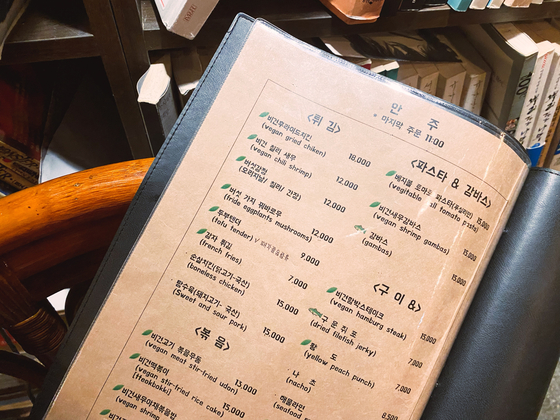 안 주
* 마지막 주문 11:00
<튀 김>
비건후라이드치킨 18,000
(vegan gried chiken)
비건 칠리 새우 12,000
(vegan chili shrimp)
버섯강정 12,000
(오리지날/ 칠리/ 간장)
버섯 가지 꿔바로우 12,000
(fride eggplants mushrooms)
두부텐더 9,000
(tofu tender)
감자 튀김 7,000
(french fries)
순살치킨(닭고기- 국산) 15,000
(boneless chicken)
탕수육(돼지고기- 국산) 15,000
(Sweet and sour pork)
<볶 음>
비건고기 볶음우동 13,000
(vegan meat stir-fried udon)
비건떡볶이 13,000
(vegan stir-fried rice cake)
(tteokbokki)
비건새우야채볶음밥
(vegan shrimp
<파스타 & 감바스>
베지볼 토마토 파스타 15,000
(vegitable ball tomato pasta)
비건새우감바스 15,000
(vegan shrimp gambas)
감바스 15,000
(gambas)
<구 이 &
비건함박스테이크 15,000
(vegan hamburg steak)
구 운 쥐 포 7,000
(dried filefish jerky)
황 도 7,000
(yellow peach punch)
나 쵸
(nacho)
해물라면
(seafood